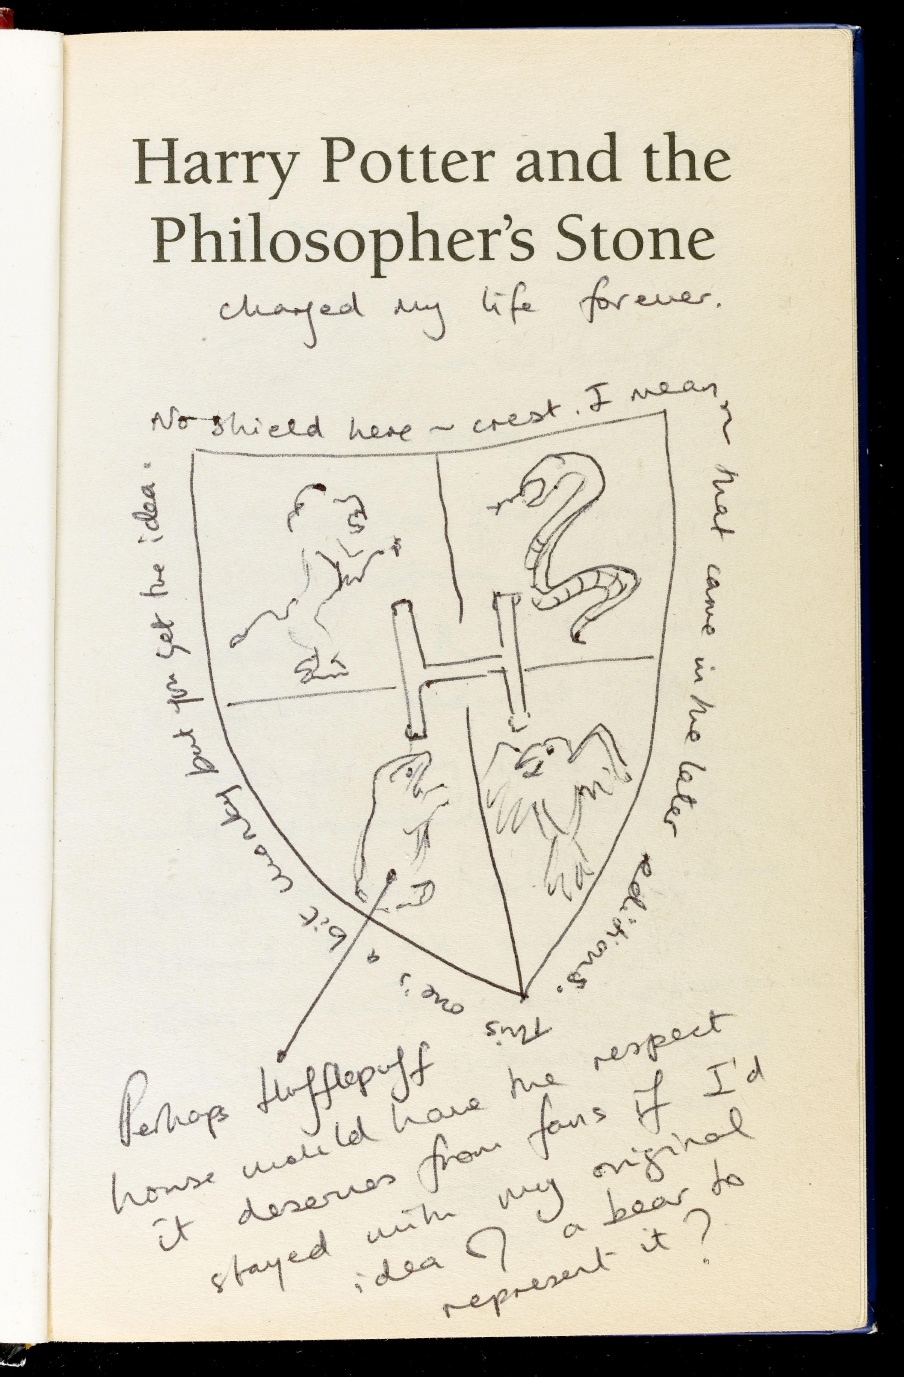 Harry Potter and the
Philosopher's Stone
changed my life forever.
No shield here ~ crest. I mean
that came in the later editions.
This one's a bit wonky but you get the idea.
H
Perhaps Hufflepuff
house would have the respect
it deserves from fans if I'd
stayed with my original
idea of a bear to
represent it?